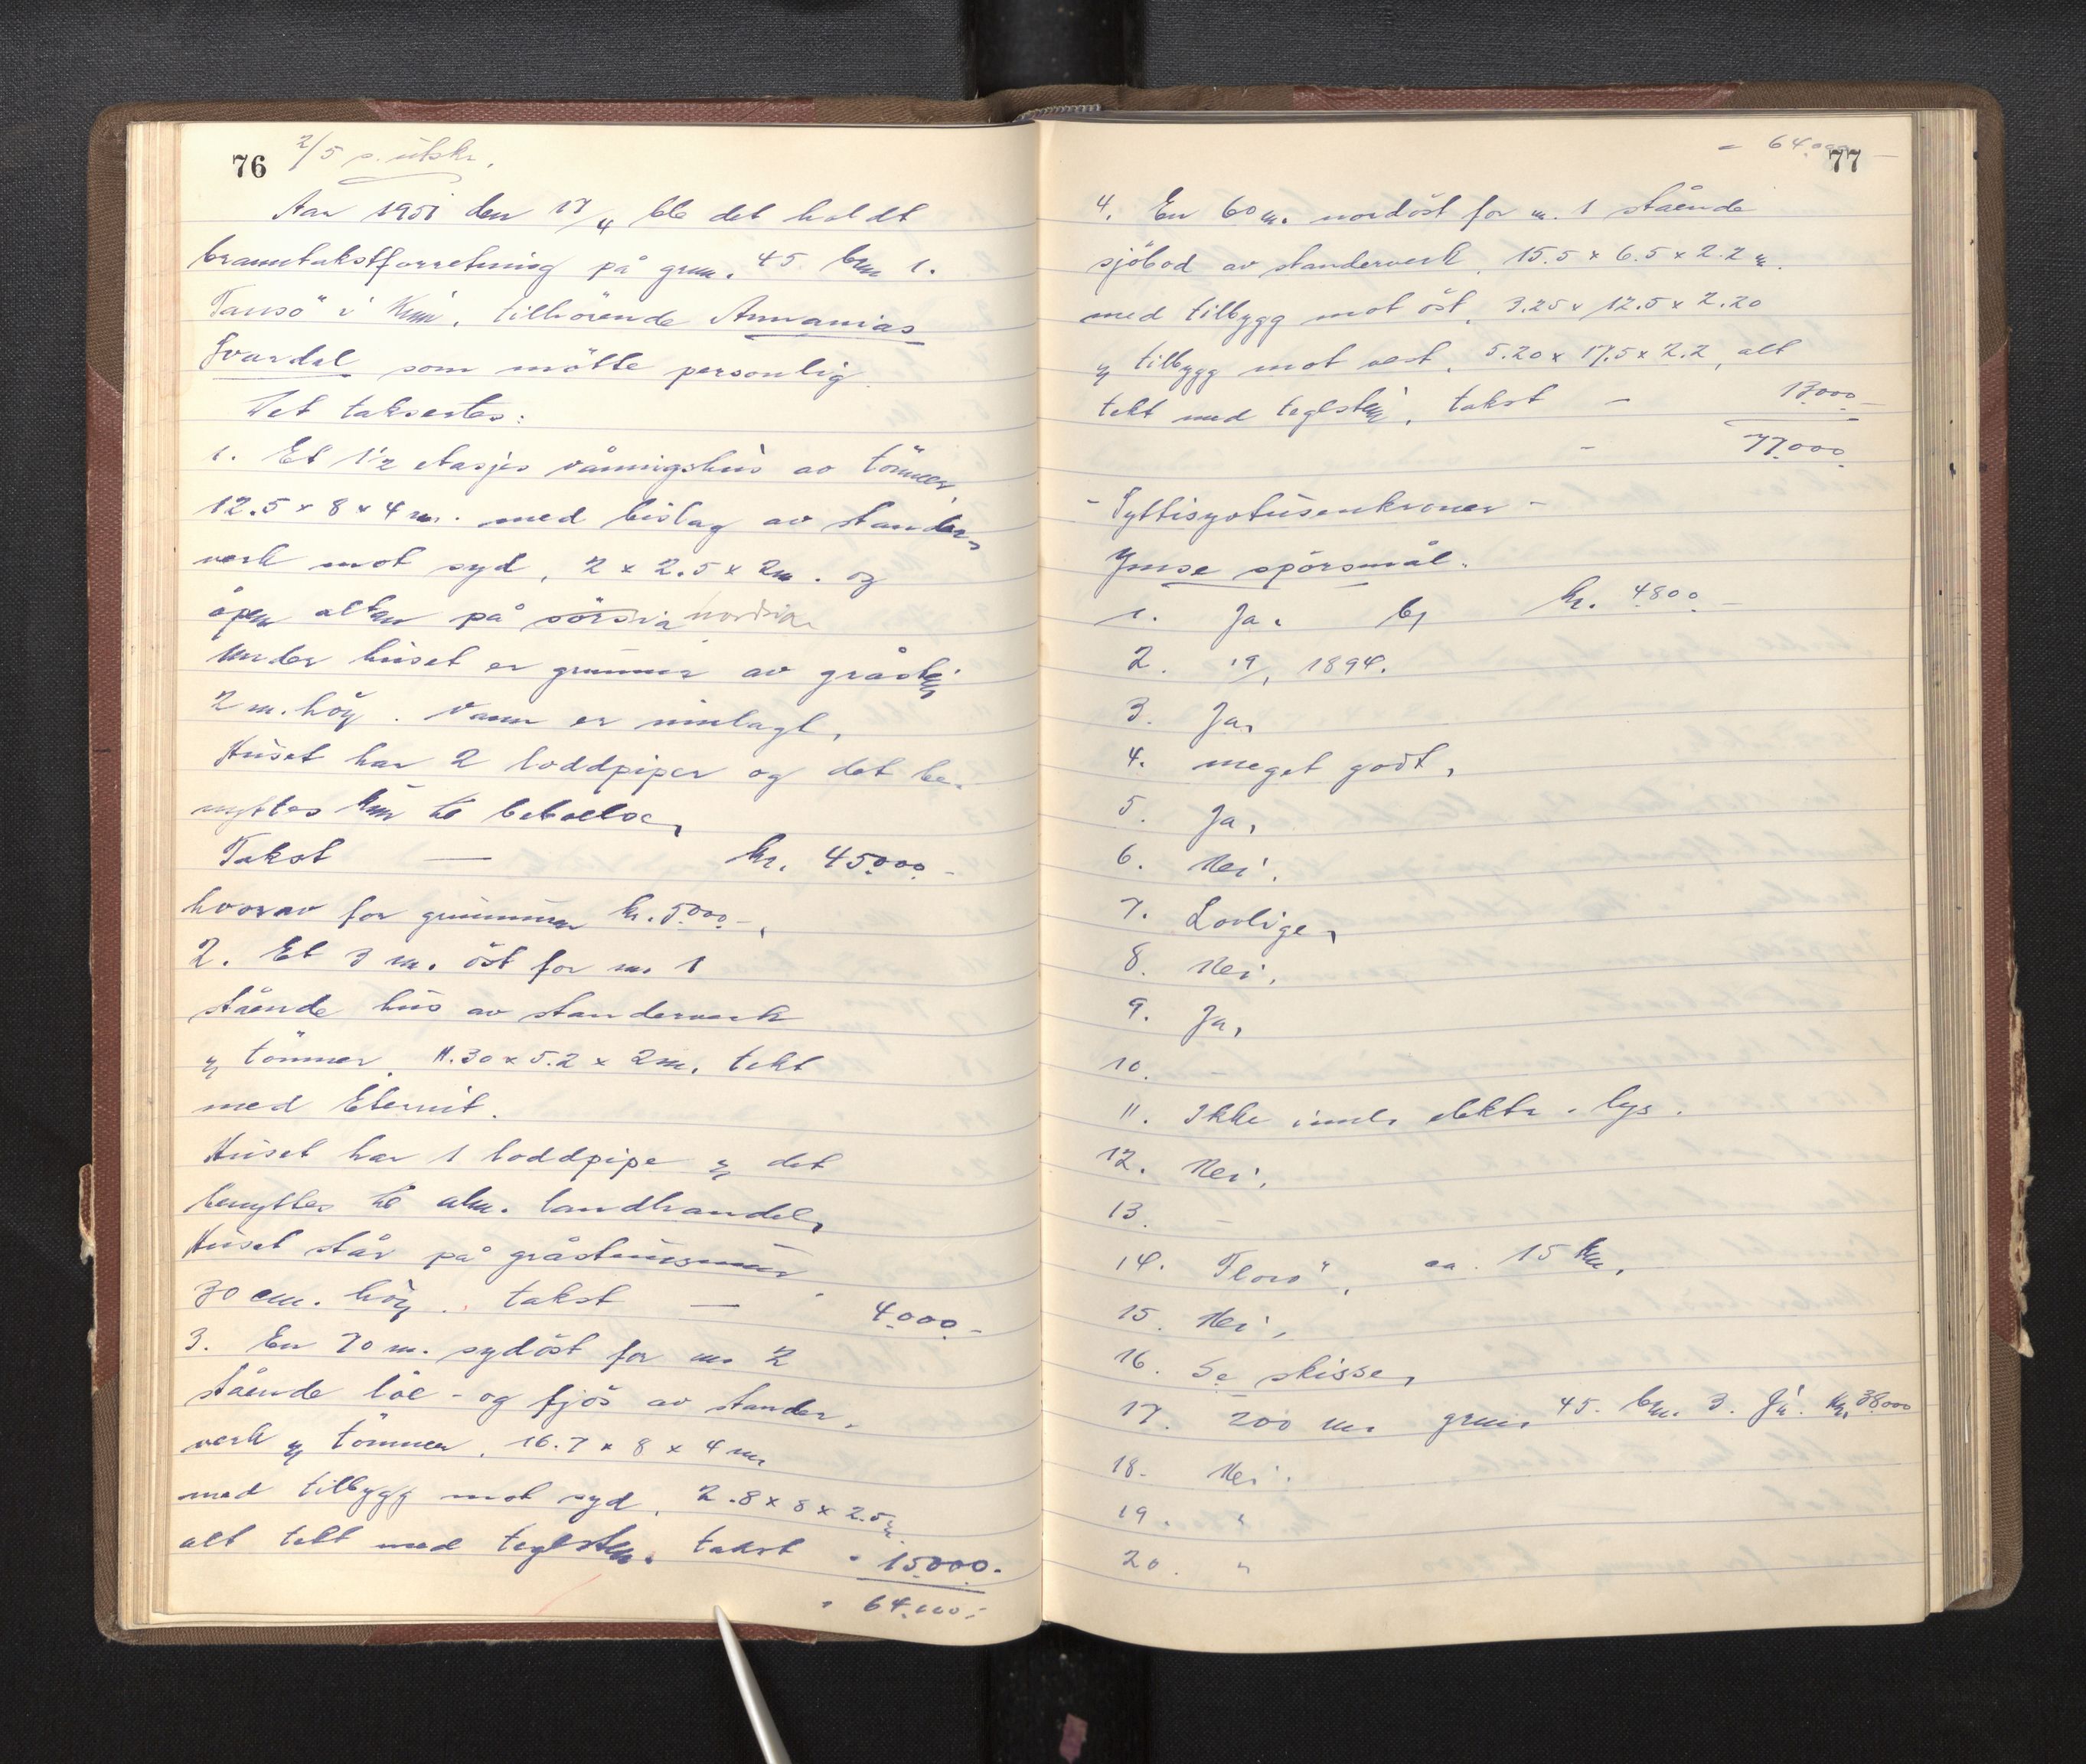 76
2/5 s. utskr.
Aar 1951 den 17/4 ble det holdt
branntakstforretning på grnr. 45 brnr 1.
Tansö i Kinn, tilhörende Annanias
Svardal som mötte personlig.
Det taksertes:
1. Et 1½ etasjes våningshus av tömmer,
12.5 x 8 x 4 m. med bislag av stander-
verk mot syd, 2 x 2.5 x 2 m. og
åpen altan på sörsia nordsia
Under huset er grunnmur av gråstein
2 m. höy. Vann er innlagt.
Huset har 2 loddpiper og det be-
nyttes kun til beboelse,
Takst — kr. 45.000.-
hvorav for grunnmur kr. 5.000.-,
2. Et 3 m. öst for nr. 1
stående hus av standerverk
og tömmer, 11.30 x 5.2 x 2 m. tekt
med Eternit.
Huset har 1 loddpipe og det
benyttes til alm. landhandel,
Huset står på gråsteinsmur
30 cm. höy. takst — 4.000.-
3. En 70 m. sydöst for nr. 2
stående löe- og fjös av stander-
verk og tömmer, 16.7 x 8 x 4 m.
med tilbygg mot syd, 2.8 x 8 x 2.5 m.
alt tekt med teglsten. takst " 15.000.-
" 64.000.-
77
- 64.000 -
4. En 60 m. nordöst for nr. 1 stående
sjöbod av standerverk, 15.5 x 6.5 x 2.2 m.
med tilbygg mot öst, 3.25 x 12.5 x 2.20
og tilbygg mot vest, 5.20 x 17.5 x 2.2, alt
tekt med teglstein, takst - 13.000.-
- 77.000.
- Syttisyvtusenkroner -
Ymse spörsmål.
1. Ja. kr. 4800.-
2. 19/1 1894.
3. Ja,
4. meget godt,
5. Ja,
6. Nei.
7. Lovlige,
8. Nei.
9. Ja,
10. -
11. Ikke innl. elektr. lys.
12. Nei,
13. -
14. Florö, ca. 15 km.
15. Nei,
16. Se skisse,
17. 200 m. grnr. 45. brnr. 3. kr. 38.000
18. Nei.
19. "
20. "